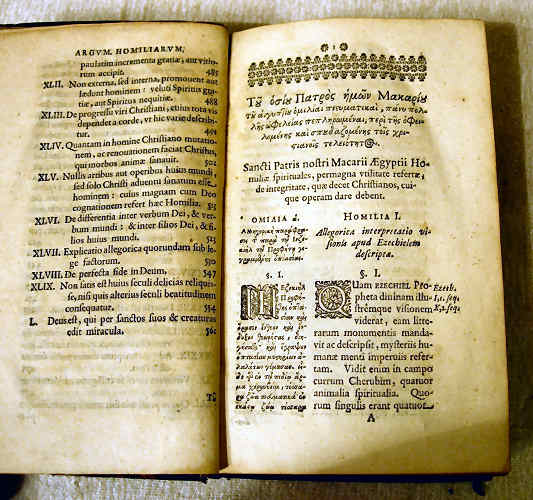 ARGVM. HOMILIARVM,
paulatim incrementa gratiæ, aut vitiorum accipit. 485
XLII. Non externa, sed interna, promouent aut
lædunt hominem: veluti Spiritus gratiæ,
aut Spiritus nequitiæ. 488
XLIII. De progressu viri Christiani, cuius tota vis
dependet a corde, vt hic varie describitur. 494
XLIV. Quantam in homine Christiano mutationem,
ac renouationem faciat Christus,
qui morbos animæ sanauit. 502
XLV. Nullis artibus aut operibus huius mundi,
sed solo Christi aduentu sanatum esse
hominem: cuius magnam cum Deo
cognationem refert hæc Homilia. 513
XLVI. De differentia inter verbum Dei, & verbum
mundi: & inter filios Dei, & filios
huius mundi. 523
XLVII. Explicatio allegorica quorundam sub lege
factorum. 530
XLVIII. De perfecta fide in Deum, 547
XLIX. Non satis est huius seculi delicias reliquisse,
nisi quis alterius seculi beatitudinem
consequatur. 554
L. Deus est, qui per sanctos suos & creaturas
edit miracula. 562
1
Τοῦ ὁσίου Πατρὸς ἡμῶν Μακαρίου
τοῦ αἰγυπτίου ὁμιλίαι πνευματικαὶ, πάνυ πολλῆς
ὠφελείας πεπληρωμέναι, περὶ τῆς ὀφειλομένης
καὶ σπουδαζομένης τοῖς χριστιανοῖς
τελειότητος.
Sancti Patris nostri Macarii Ægyptii Homiliæ
spirituales, permagna vtilitate refertæ,
de integritate, quæ decet Christianos, cuique
operam dare debent.
ΟΜΙΛΙΑ α.
§. I.
HOMILIA I.
Allegorica interpretatio visionis
apud Ezechielem
descripta.
§. I.
QUam EZECHIEL Propheta
diuinam illustrémque
visionem
viderat, eam litterarum
monumentis mandavit
ac descripsit, mysteriis humanæ
menti imperuiis refertam.
Vidit enim in campo
currum Cherubim, quatuor
animalia spiritualia. Quorum
singulis erant quatuor
Ezech.
1,1. seq.
X,1. seq.
A